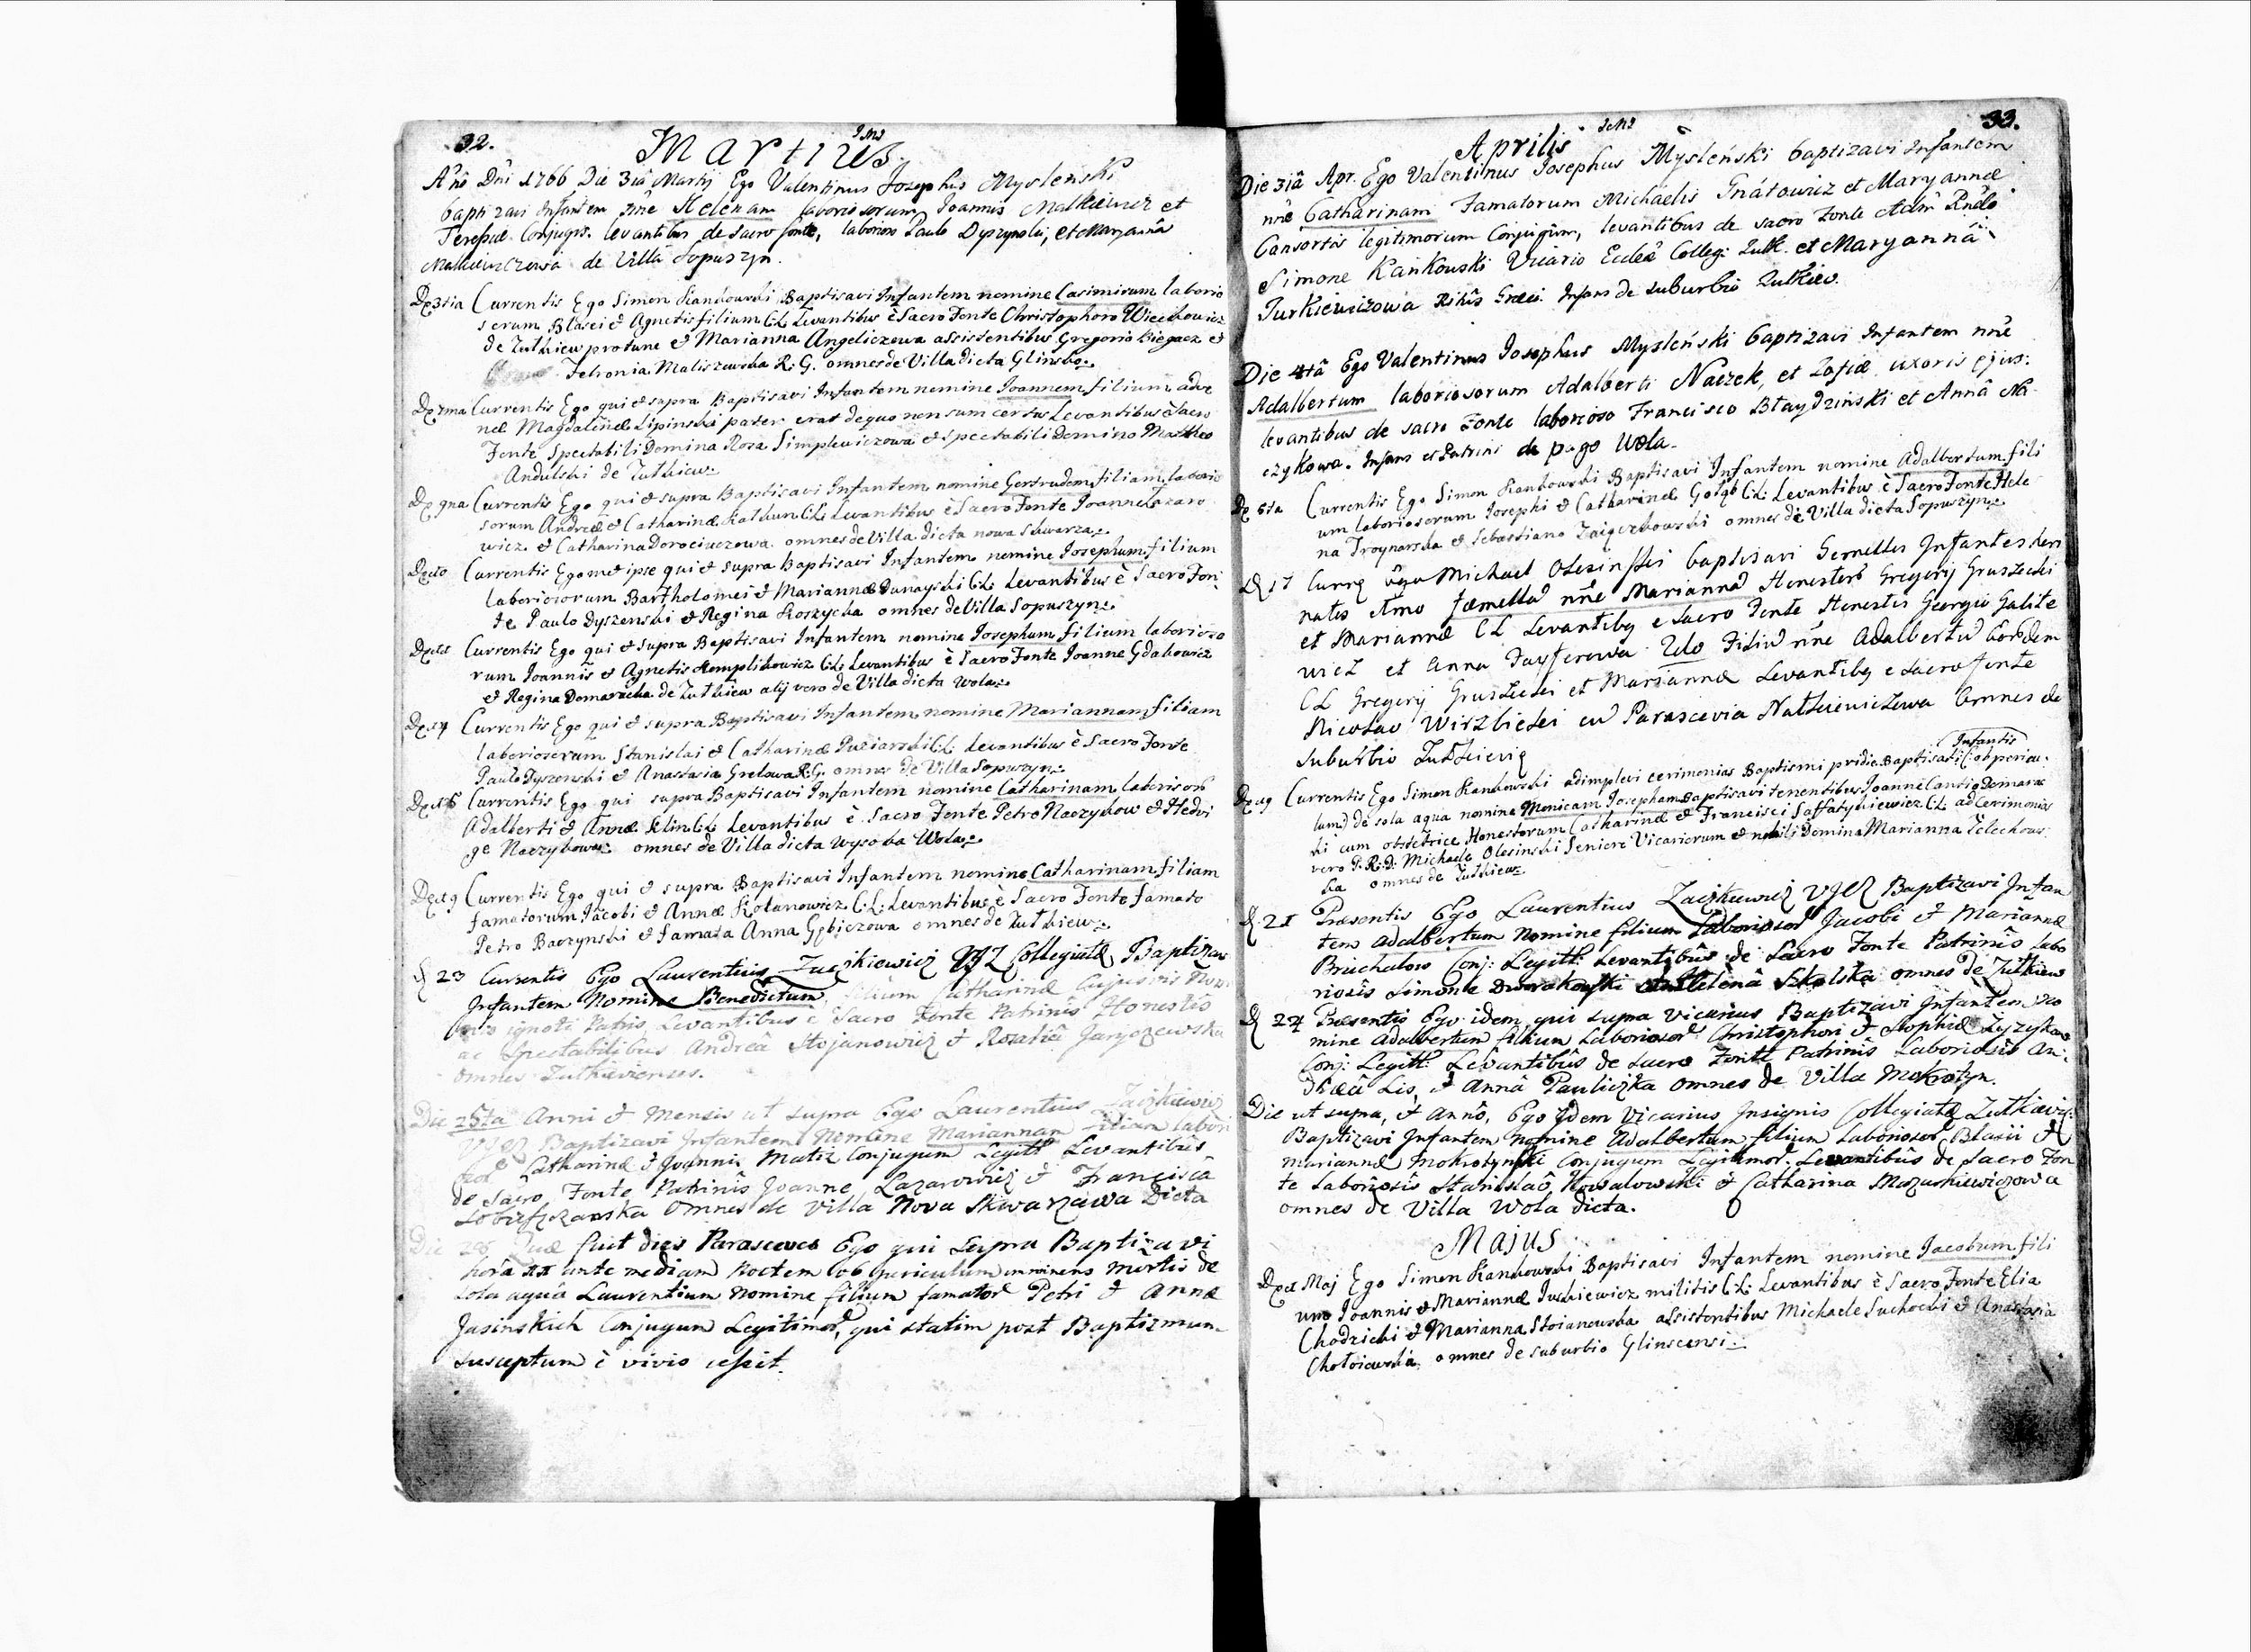 32.
Martius
Año Dñi 1766 Die 3iâ Martij Ego Valentinus Josephus Mysleński
baptizavi Infantem nñe Helenam laboriosorum Joannis Malkiewicz et
Teresiæ Conjugū. levantibus de sacro fonte, laborioso Paulo Dyszynski, et Maryannâ
de Villa Sopuszyn.
Dę 3tia Currentis Ego Simon Kankowski Baptisavi Infantem nomine Casimirum laborio
sorum Blasei & Agnetis filium C:L: Levantibus è Sacro Fonte Christophoro Wiechowicz
de Zułkiew protunc & Marianna Angeliczowa assistentibus Gregorio Biegacz &
Petronia Maliszewska R:G: omnes de Villa dicta Glinsko
Dę 7ma Currentis Ego qui & supra Baptisavi Infantem nomine Joannem filium adve
næ Magdalenæ Lipinski pater erat de quo non sum certus Levantibus è Sacro
Fonte Spectabili Domina Rosa Simplewiczowa & Spectabili Domino Mattheo
Andulski de Zułkiew
Dę 9na Currentis Ego qui & supra Baptisavi Infantem nomine Gertrudem filiam laborio
sorum Andreæ & Catharinæ Rathun C:L: Levantibus è Sacro Fonte Joanne Łazaro
wicz & Catharina Dorociuczowa omnes de Villa dicta nowa Skwarza
Currentis Egomet ipse qui & supra Baptisavi Infantem nomine Josephum filium
laboriosorum Bartholomei & Mariannæ Dunayski C:L: Levantibus è Sacro Fon
te Paulo Dyszenski & Regina Koszycka omnes de Villa Sopuszyn
Currentis Ego qui & supra Baptisavi Infantem nomine Josephum filium laborioso
rum Joannis & Agnetis Hemplikowicz C:L: Levantibus è Sacro Fonte Joanne Gdakowicz
& Regina Domaracka de Zułkiew alij vero de Villa dicta Wola
Dę 14 Currentis Ego qui & supra Baptisavi Infantem nomine Mariannam filiam
laboriosorum Stanislai & Catharinæ Puziarski C:L: Levantibus è Sacro Fonte
Paulo Dyszenski & Anastasia Grelowa R:G: omnes de Villa Sopuszyn
Currentis Ego qui supra Baptisavi Infantem nomine Catharinam laboriosor
Adalberti & Annæ Klin C:L: Levantibus è Sacro Fonte Petro Naczykow & Hedvi
ge Naczykowa omnes de Villa dicta Wysoka Wola
Dę 19 Currentis Ego qui & supra Baptisavi Infantem nomine Catharinam filiam
famatorum Jacobi & Annæ Kolanowicz C:L: Levantibus è Sacro Fonte famato
Petro Baczynski & famata Anna Gębiczowa omnes de Zułkiew
23 Currentis Ego Laurentius Zaczkiewicz Collegiatæ Baptizavi
Infantem Nomine Benedictum, filium Catharinæ Cujusvis Nomi
nis ignoti Patris, Levantibus è Sacro Fonte Patrinis Honestis
ac Spectabilibus Andreâ Stojanowicz & Rozaliâ Janiszewska
omnes Zułkievienses.
Die 25ta Anni & Mensis ut supra Ego Laurentius Zaczkiewicz
Baptizavi Infantem Nomine Mariannam filiam labori
Catharinæ & Joannis Matiz Conjugum Legitt: Levantibûs
de Sacro Fonte Patrinis Joanne Lazarowicz & Franciscâ
omnes de Villa Nova Skwarzawa Dicta
Die 28 Quæ fuit dies Parasceves Ego qui supra Baptizavi
horâ ante mediam Noctem ob periculum imminens mortis de
sola aqua Laurentium Nomine filium famator Petri & Annæ
Jasinskich Conjugum Legitimor, qui statim post Baptizmum
susceptum è vivis cessit.
33.
Aprilis
Die 3iâ Apr. Ego Valentinus Josephus Mysleński baptizavi Infantem
nñe Catharinam Famatorum Michaelis Gnátowicz et Maryannæ
Consortis legitimorum Conjugūm, levantibus de sacro Fonte Adm Rndo
Simone Kańkouski Vicario Eccleæ Collegi: Zułk. et Maryannâ
Turkiewiczowa Ritûs Græci. Infans de suburbio Zułkiew.
Die 4tâ Ego Valentinus Josephus Mysleński baptizavi Infantem nñe
Adalbertum laboriosorum Adalberti Naczek, et Zofiæ uxoris ejus:
levantibus de sacro Fonte laborioso Francisco Błaydziński et Annâ Na
czykowa. Infans et Patrini de pago Wola.
Dę 6ta Currentis Ego Simon Kankowski Baptisavi Infantem nomine Adalbertum fili
um laboriosorum Josephi & Catharinæ Gołąb C:L: Levantibus è Sacro Fonte Hele
na Troynarska & Sebastiano Zaięczkowski omnes de Villa dicta Sopuszyn
17 Currę Ego Michael Olesinski baptisavi Gemellos Infantes heri
natos Imo fæmellā nñe Mariannā Honestorū Gregorij Gruszecki
et Mariannæ CL Levantibę e Sacro Fonte Honestis Georgio Galite
wicz et Anna Fayferowa. 2do Filiū nñe Adalbertū Eorūdem
CL Gregorij Gruszecki et Mariannæ Levantibę e Sacro fonte
Nicolao Wirzbicki cū Parascevia Natkiewiczowa Omnes de
suburbio Zułkievię
Infantis
Dę 19 Currentis Ego Simon Kankowski adimplevi cerimonias Baptismi pridie Baptisati (: ob pericu:
lum) de sola aqua nomine Monicam Josepham Baptisavi tenentibus Joanne Cantio Domara
ki cum obstetrice Honestorum Catharinæ & Francisci Saffatynkiewicz C:L: ad Cerimonias
vero P:R:D: Michaele Olesinski Seniore Vicariorum & nobili Domina Marianna Zelechows
ka omnes de Zułkiew
21 Præsentis Ego Laurentius Zaczkiewicz Baptizavi Infan
tem Adalbertum Nomine filium Laborioser Jacobi & Mariannæ
Bruchalow Conj: Legitt: Levantibûs de Sacro Fonte Patrinîs labo
riosis Simone Dworakowski & Helenâ Szkolska omnes de Zułkiew
24 Præsentis Ego idem qui supra Vicarius Baptizavi Infantem No
mine Adalbertum filium Laborioser Christophori & Sophiæ
Conj: Legitt: Levantibûs de Sacro Fonte Patrinîs Laboriosis An:
dræâ Lis, & Annâ Pauliczka omnes de Villa Mokrotyn.
Die ut supra, & Annô, Ego Idem Vicarius Insignis Collegiatæ Zułkievię:
Baptizavi Infantem Nomine Adalbertum filium Laborioser Blasii &
Mariannæ Mokrotynski Conjugum Legitimor. Levantibûs de Sacro Fon
te Laboriosis Stanislaô Kowalowski & Catharina Mazurkiewiczowa
omnes de Villa Wola dicta.
Majus
Dę 1 Maj Ego Simon Kankowski Baptisavi Infantem nomine Jacobum fili
um Joannis & Mariannæ Juskiewicz militis C:L: Levantibus è Sacro Fonte Elia
Chodzicki & Marianna Stoianowska assistentibus Michaele Suchocki & Anastasia
Chołoiewska omnes de suburbio Glinscensi